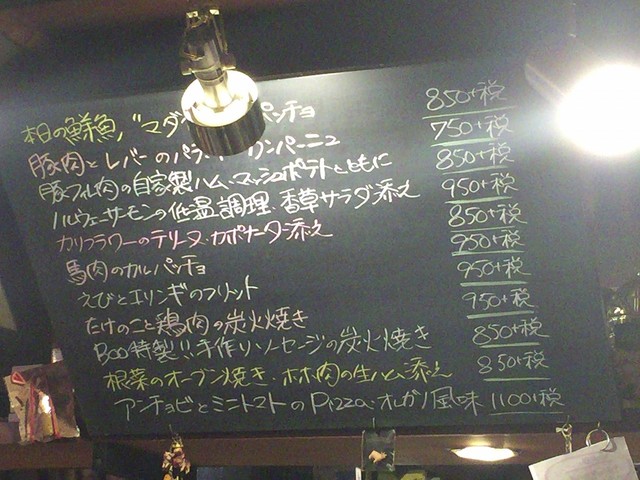 本日の鮮魚 "マダ パンチョ 850+税
豚肉とレバーのパ カンパーニュ 750+税
豚フィレ肉の自家製ハム・マッシュポテトとともに 850+税
ノルウェーサーモンの低温調理・香草サラダ添え 950+税
カリフラワーのテリーヌ・カポナータ添え 850+税
馬肉のカルパッチョ 950+税
えびとエリンギのフリット 950+税
たけのこと鶏肉の炭火焼き 950+税
Boo特製!!手作りソーセージの炭火焼き 850+税
根菜のオーブン焼き・ホホ肉の生ハム添え 850+税
アンチョビとミニトマトのPizza・オレガノ風味 1100+税